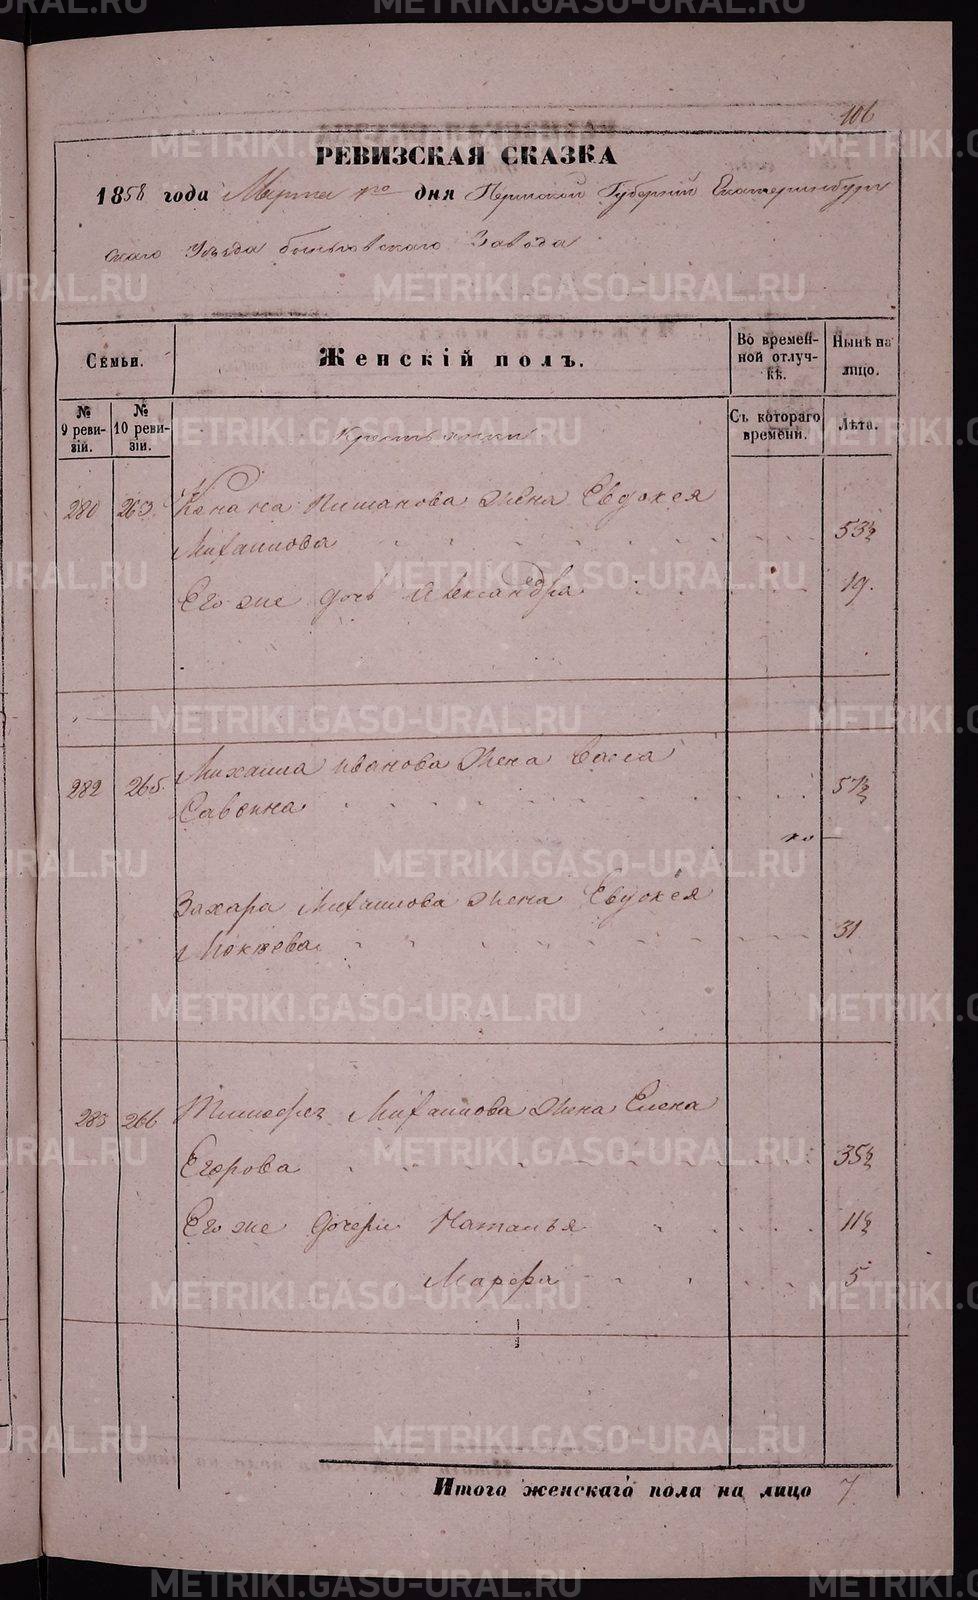 METRIKI.GASO-URAL.RU
106
РЕВИЗСКАЯ СКАЗКА
1858 года Марта 1го дня Пермской Губернии Екатеринбург
скаго Уезда Завода
Семьи.
Женскій полъ.
Во времен-
ной отлуч-
кѣ.
Нынѣ на
лицо.
№
9 реви-
зіи.
№
10 реви-
зіи.
Крестьянки
Съ котораго
времени.
Лѣта.
280 263 Конана жена Евдокея
Михаилова 53½
Его же дочь Александра 19.
282 265. Михаила Иванова жена Васса
Саввина 57½
Захара Михаилова жена Евдокея
Мокеева 31
283 266 Тимофея Михаилова жена Елена
Егорова 35½
Его же дочери Наталья 11½
Марфа 5
Итого женскаго пола на лицо 7